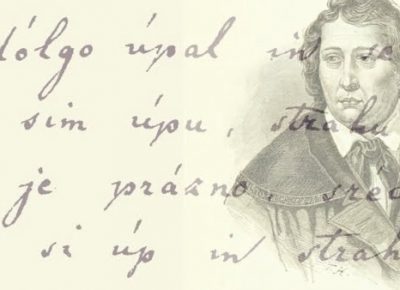 dólgo úpal in se
sim úpu, strahu
je prázno, sréč
si úp in strah